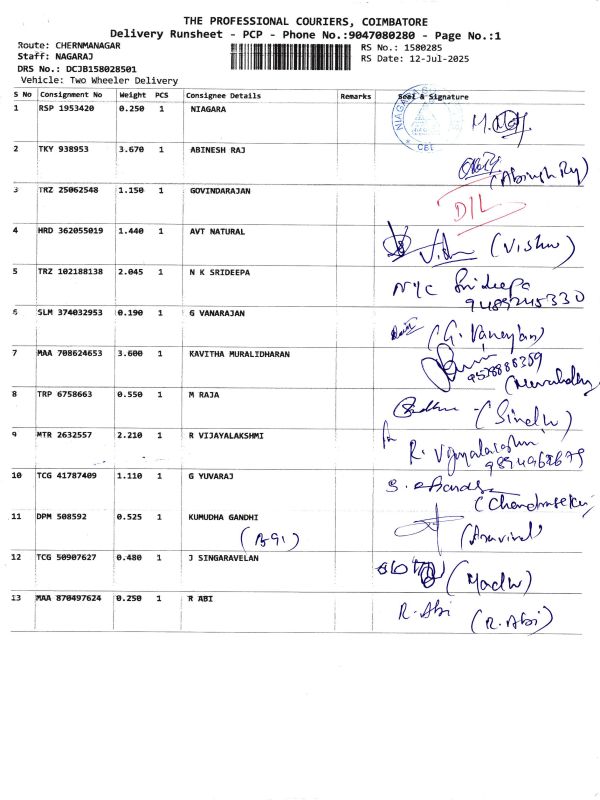 THE PROFESSIONAL COURIERS, COIMBATORE
Delivery Runsheet - PCP - Phone No.:9047080280 - Page No.:1
Route: CHERNMANAGAR RS No.: 1580285
Staff: NAGARAJ RS Date: 12-Jul-2025
DRS No.: DCJB158028501
Vehicle: Two Wheeler Delivery
S No Consignment No Weight PCS Consignee Details Remarks Seal & Signature
1 RSP 1953420 0.250 1 NIAGARA
2 TKY 938953 3.670 1 ABINESH RAJ
(Abinesh Raj)
3 TRZ 25062548 1.150 1 GOVINDARAJAN D/L
4 HRD 362055019 1.440 1 AVT NATURAL (Vishnu)
5 TRZ 102188138 2.045 1 N K SRIDEEPA N/C Srideepa
9489245330
6 SLM 374032953 0.190 1 G VANARAJAN
(G. Vanarajan)
7 MAA 708624653 3.600 1 KAVITHA MURALIDHARAN
8 TRP 6758663 0.550 1 M RAJA (Sindhu)
9 MTR 2632557 2.210 1 R VIJAYALAKSHMI R. Vijayalakshmi
10 TCG 41787409 1.110 1 G YUVARAJ
11 DPM 508592 0.525 1 KUMUDHA GANDHI
(Aravind)
12 TCG 50907627 0.480 1 J SINGARAVELAN (Madhu)
13 MAA 870497624 0.250 1 R ABI R. Abi (R. Abi)